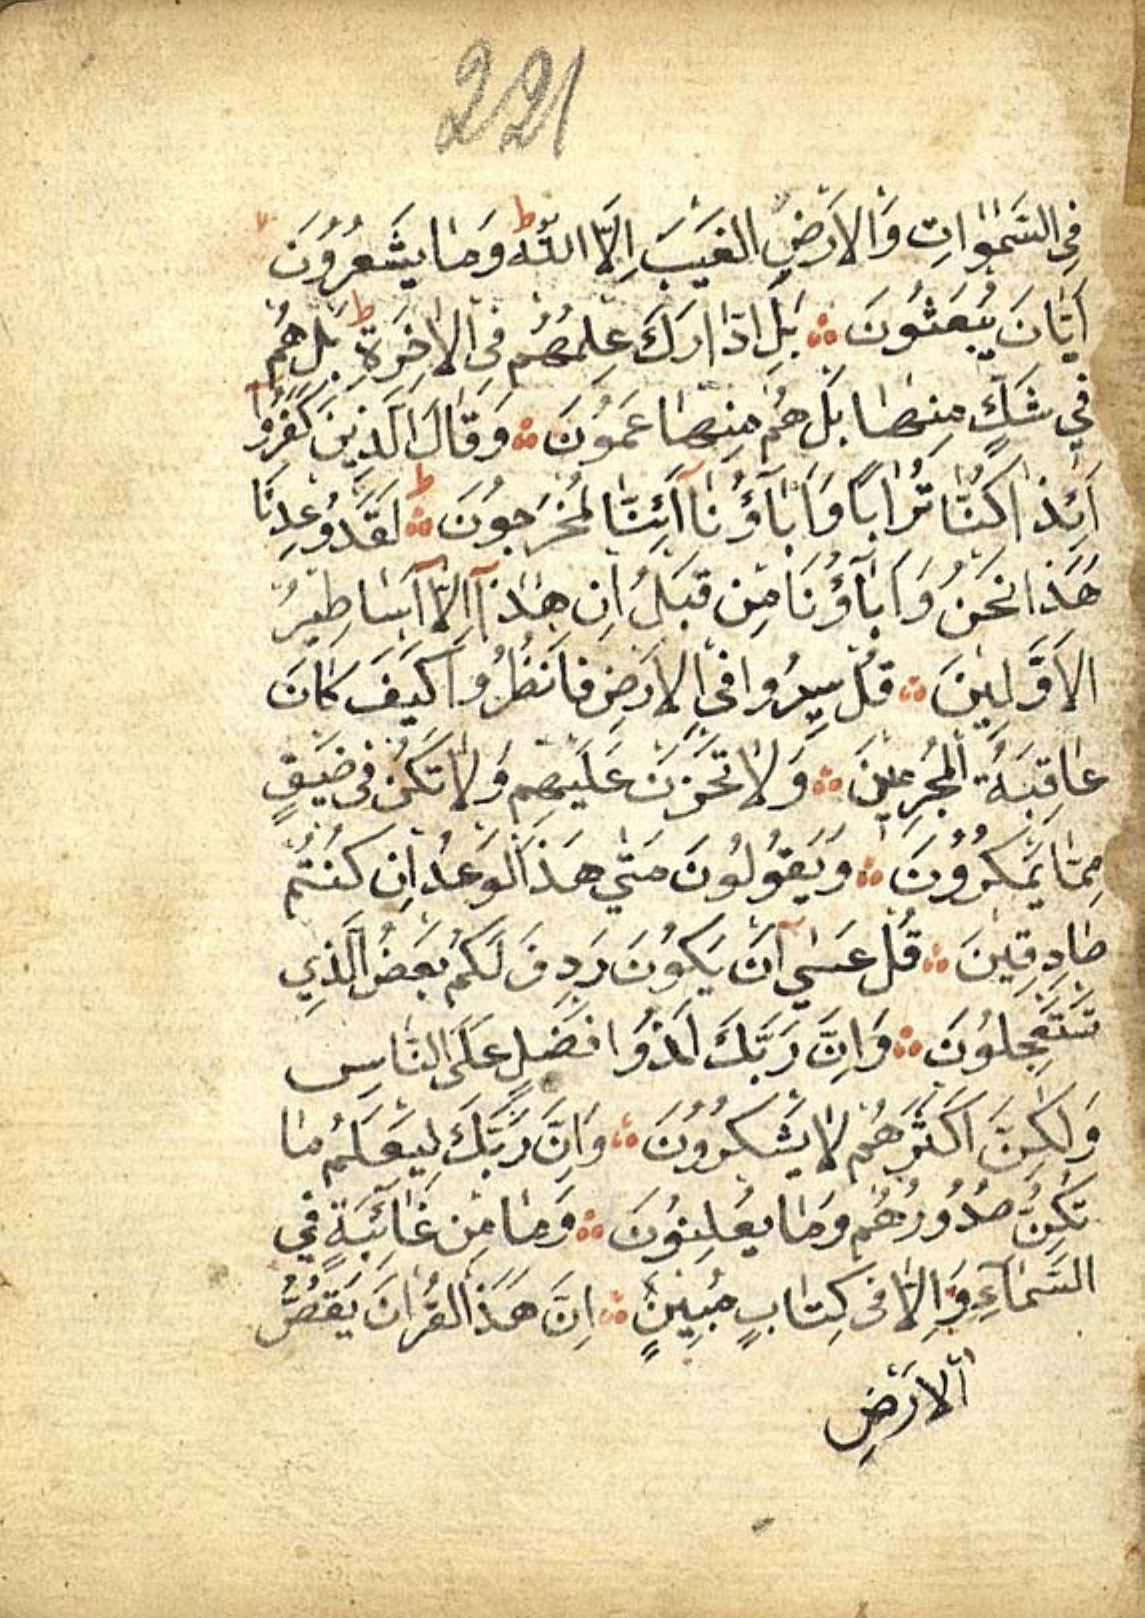 221
فِي السَّمٰوَاتِ وَالْاَرْضِ الْغَيْبَ اِلَّا اللّٰهُ ط وَمَا يَشْعُرُوُنَ
اَيَّانَ يُبْعَثُونَ ۞ بَلِ ادّٰارَكَ عِلْمُهُمْ فِي الْاٰخِرَةِ ط بَلْ هُمْ
فِي شَكٍّ مِنْهَا بَلْ هُمْ مِنْهَا عَمُوُنَ ۞ وَقَالَ الَّذِينَ كَفَرُوا
اَئِذَا كُنَّا تُرَابًا وَاٰبَآؤُنَا اَئِنَّا لَمُخْرَجُونَ ط ۞ لَقَدْ وُعِدْنَا
هَذَا نَحْنُ وَاٰبَآؤُنَا مِنْ قَبْلُ اِنْ هٰذَآ اِلَّا اَسَاطِيرُ
الْاَوَّلِينَ ۞ قُلْ سِيرُوا فِي الْاَرْضِ فَانْظُرُوا كَيْفَ كَانَ
عَاقِبَةُ الْمُجْرِمِينَ ۞ وَلَا تَحْزَنْ عَلَيْهِمْ وَلَا تَكُنْ فِي ضَيْقٍ
مِمَّا يَمْكُرُوُنَ ۞ وَيَقُولُونَ مَتٰي هَذَا الْوَعْدُ اِنْ كُنْتُمْ
صَادِقِينَ ۞ قُلْ عَسٰي اَنْ يَكُونَ رَدِفَ لَكُمْ بَعْضُ الَّذِي
تَسْتَعْجِلُونَ ۞ وَاِنَّ رَبَّكَ لَذُوا فَضْلٍ عَلَى النَّاسِ
وَلٰكِنَّ اَكْثَرَهُمْ لَا يَشْكُرُوُنَ ۞ وَاِنَّ رَبَّكَ لَيَعْلَمُ مَا
تُكِنُّ صُدُورُهُمْ وَمَا يُعْلِنُونَ ۞ وَمَا مِنْ غَائِبَةٍ فِي
السَّمَآءِ وَاِلَّا فِي كِتَابٍ مُبِينٍ ۞ اِنَّ هَذَا الْقُرْاٰنَ يَقُصُّ
الْاَرْضِ